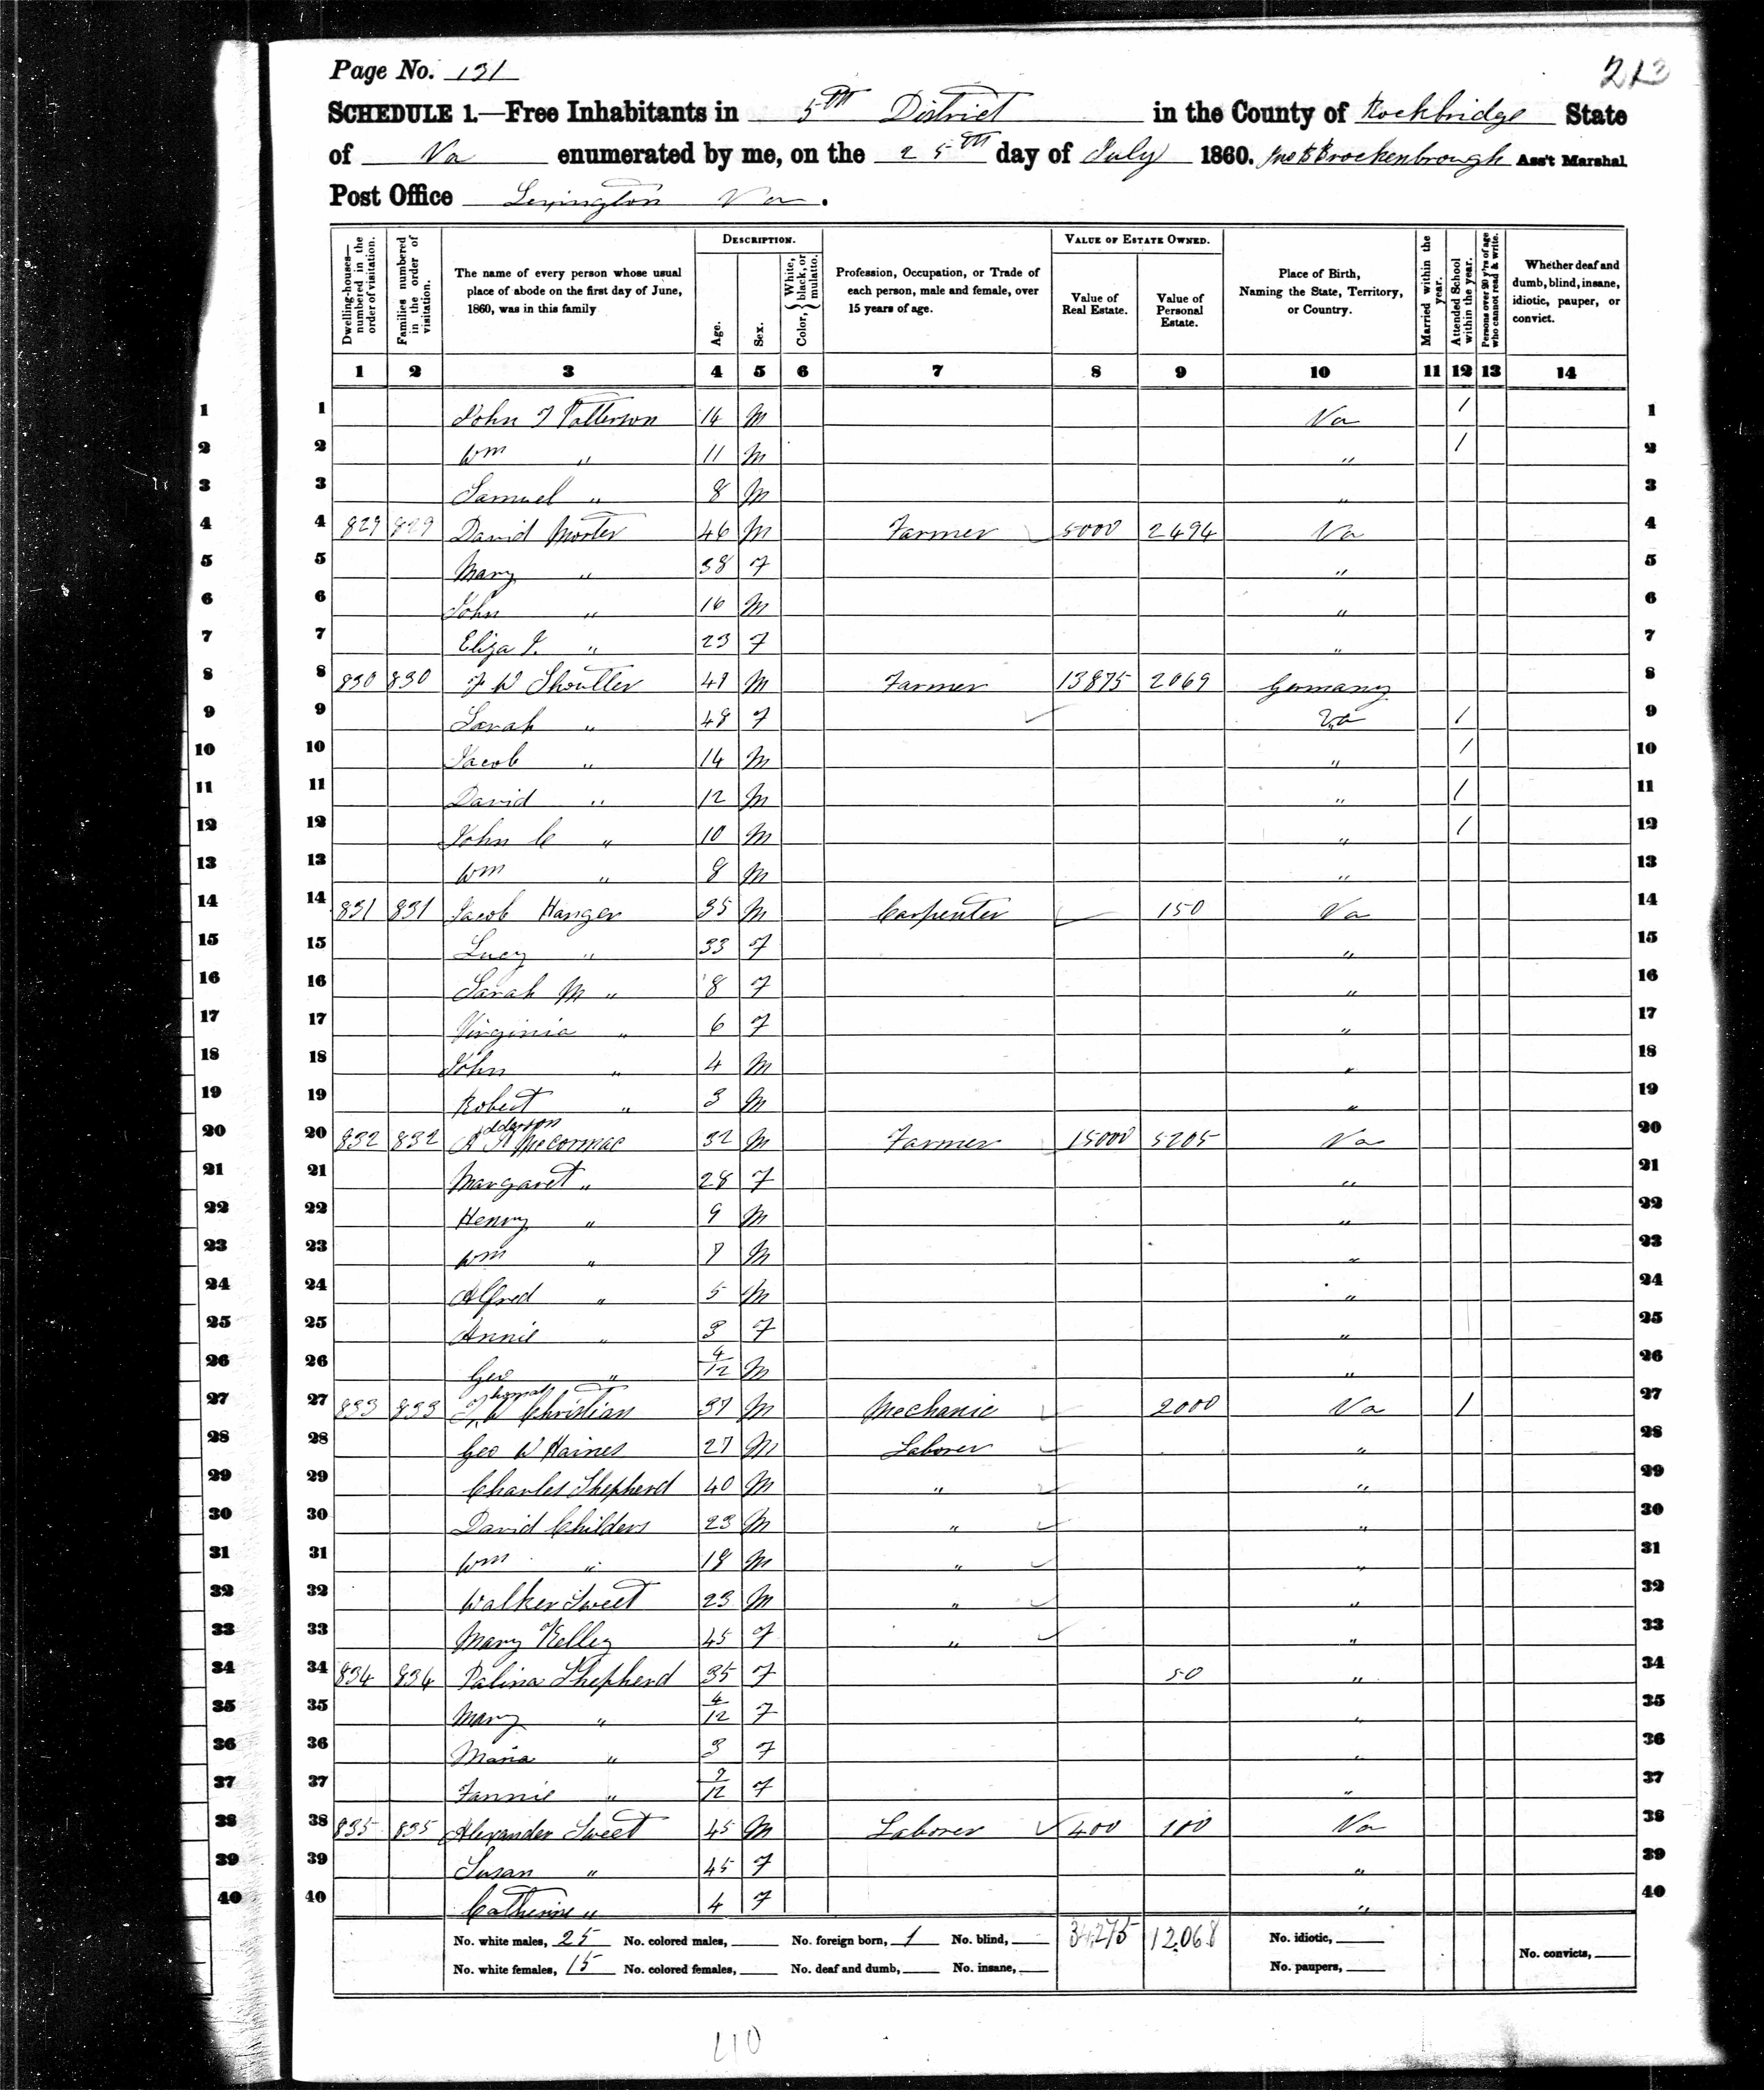 Page No. 131
213
SCHEDULE 1.—Free Inhabitants in 5th District in the County of Rockbridge State
of Va enumerated by me, on the 25th day of July 1860. Jno B Brockenbrough Ass't Marshal
Post Office Lexington Va.
Dwelling-houses—numbered in the order of visitation.
Families numbered in the order of visitation.
The name of every person whose usual place of abode on the first day of June, 1860, was in this family
DESCRIPTION.
Age.
Sex.
Color, { White, black, or mulatto.
Profession, Occupation, or Trade of each person, male and female, over 15 years of age.
VALUE OF ESTATE OWNED.
Value of Real Estate.
Value of Personal Estate.
Place of Birth, Naming the State, Territory, or Country.
Married within the year.
Attended School within the year.
Persons over 20 y'rs of age who cannot read & write.
Whether deaf and dumb, blind, insane, idiotic, pauper, or convict.
1 2 3 4 5 6 7 8 9 10 11 12 13 14
1 1 John T Patterson 14 M Va / 1
2 2 Wm " 11 M " / 2
3 3 Samuel " 8 M " 3
4 4 829 829 David Morter 46 M Farmer 5000 2494 Va 4
5 5 Mary " 38 F " 5
6 6 John " 16 M " 6
7 7 Eliza J. " 23 F " 7
8 8 830 830 F W Shoulter 47 M Farmer 13875 2069 Germany 8
9 9 Sarah " 48 F Va / 9
10 10 Jacob " 14 M " / 10
11 11 David " 12 M " / 11
12 12 John C " 10 M " / 12
13 13 Wm " 8 M " 13
14 14 831 831 Jacob Hanger 35 M Carpenter 150 Va 14
15 15 Lucy " 33 F " 15
16 16 Sarah M " 8 F " 16
17 17 Virginia " 6 F " 17
18 18 John " 4 M " 18
19 19 Robert " 3 M " 19
20 20 832 832 A A McCormac 32 M Farmer 15000 5205 Va 20
21 21 Margaret " 28 F " 21
22 22 Henry " 9 M " 22
23 23 Wm " 7 M " 23
24 24 Alfred " 5 M " 24
25 25 Annie " 3 F " 25
26 26 Geo " 4/12 M " 26
27 27 833 833 Thomas W Christian 37 M Mechanic 2000 Va / 27
28 28 Geo W Haines 27 M Laborer " 28
29 29 Charles Shepherd 40 M " " 29
30 30 David Childers 23 M " " 30
31 31 Wm " 18 M " " 31
32 32 Walker Sweet 23 M " " 32
33 33 Mary Kelley 45 F " " 33
34 34 834 834 Palina Shepherd 35 F 50 " 34
35 35 Mary " 4/12 F " 35
36 36 Maria " 3 F " 36
37 37 Fannie " 9/12 F " 37
38 38 835 835 Alexander Sweet 45 M Laborer 400 100 Va 38
39 39 Susan " 45 F " 39
40 40 Catherine " 4 F " 40
No. white males, 25 No. colored males, No. foreign born, 1 No. blind, 34,275 12,068 No. idiotic,
No. white females, 15 No. colored females, No. deaf and dumb, No. insane, No. paupers, No. convicts,
210